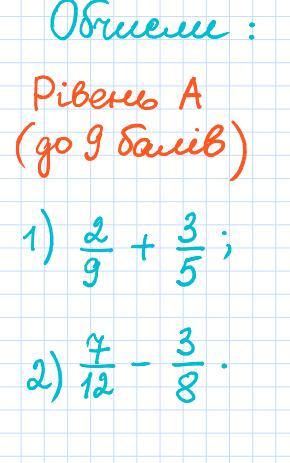 Обчисли :
Рівень А
(до 9 балів)
1) 2/9 + 3/5 ;
2) 7/12 - 3/8 .